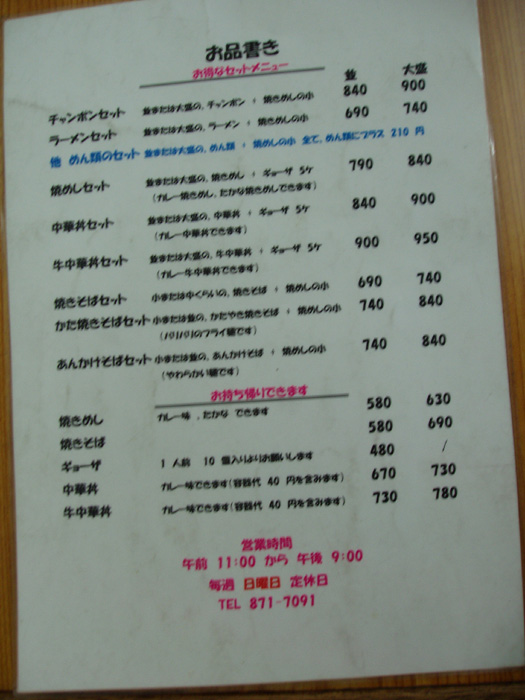 お品書き
お得なセットメニュー
並 大盛
チャンポンセット 並または大盛の、チャンポン + 焼きめしの小 840 900
ラーメンセット 並または大盛の、ラーメン + 焼きめしの小 690 740
他 めん類のセット 並または大盛の、めん類 + 焼めしの小 全て、めん類にプラス 210 円
焼めしセット 並または大盛の、焼めし + ギョーザ 5ケ 790 840
(カレー焼きめし、たかな焼きめしできます)
中華丼セット 並または大盛の、中華丼 + ギョーザ 5ケ 840 900
(カレー中華丼できます)
牛中華丼セット 並または大盛の、牛中華丼 + ギョーザ 5ケ 900 950
(カレー牛中華丼できます)
焼きそばセット 小または中くらいの、焼きそば + 焼めしの小 690 740
かた焼きそばセット 小または並の、かたやき焼きそば + 焼めしの小 740 840
(パリパリのフライ麺です)
あんかけそばセット 小または並の、あんかけそば + 焼めしの小 740 840
(やわらかい麺です)
お持ち帰りできます
焼きめし カレー味 、たかな できます 580 630
焼きそば 580 690
ギョーザ 1 人前 10 個入りよりお願いします 480 /
中華丼 カレー味できます(容器代 40 円を含みます) 670 730
牛中華丼 カレー味できます(容器代 40 円を含みます) 730 780
営業時間
午前 11:00 から 午後 9:00
毎週 日曜日 定休日
TEL 871-7091